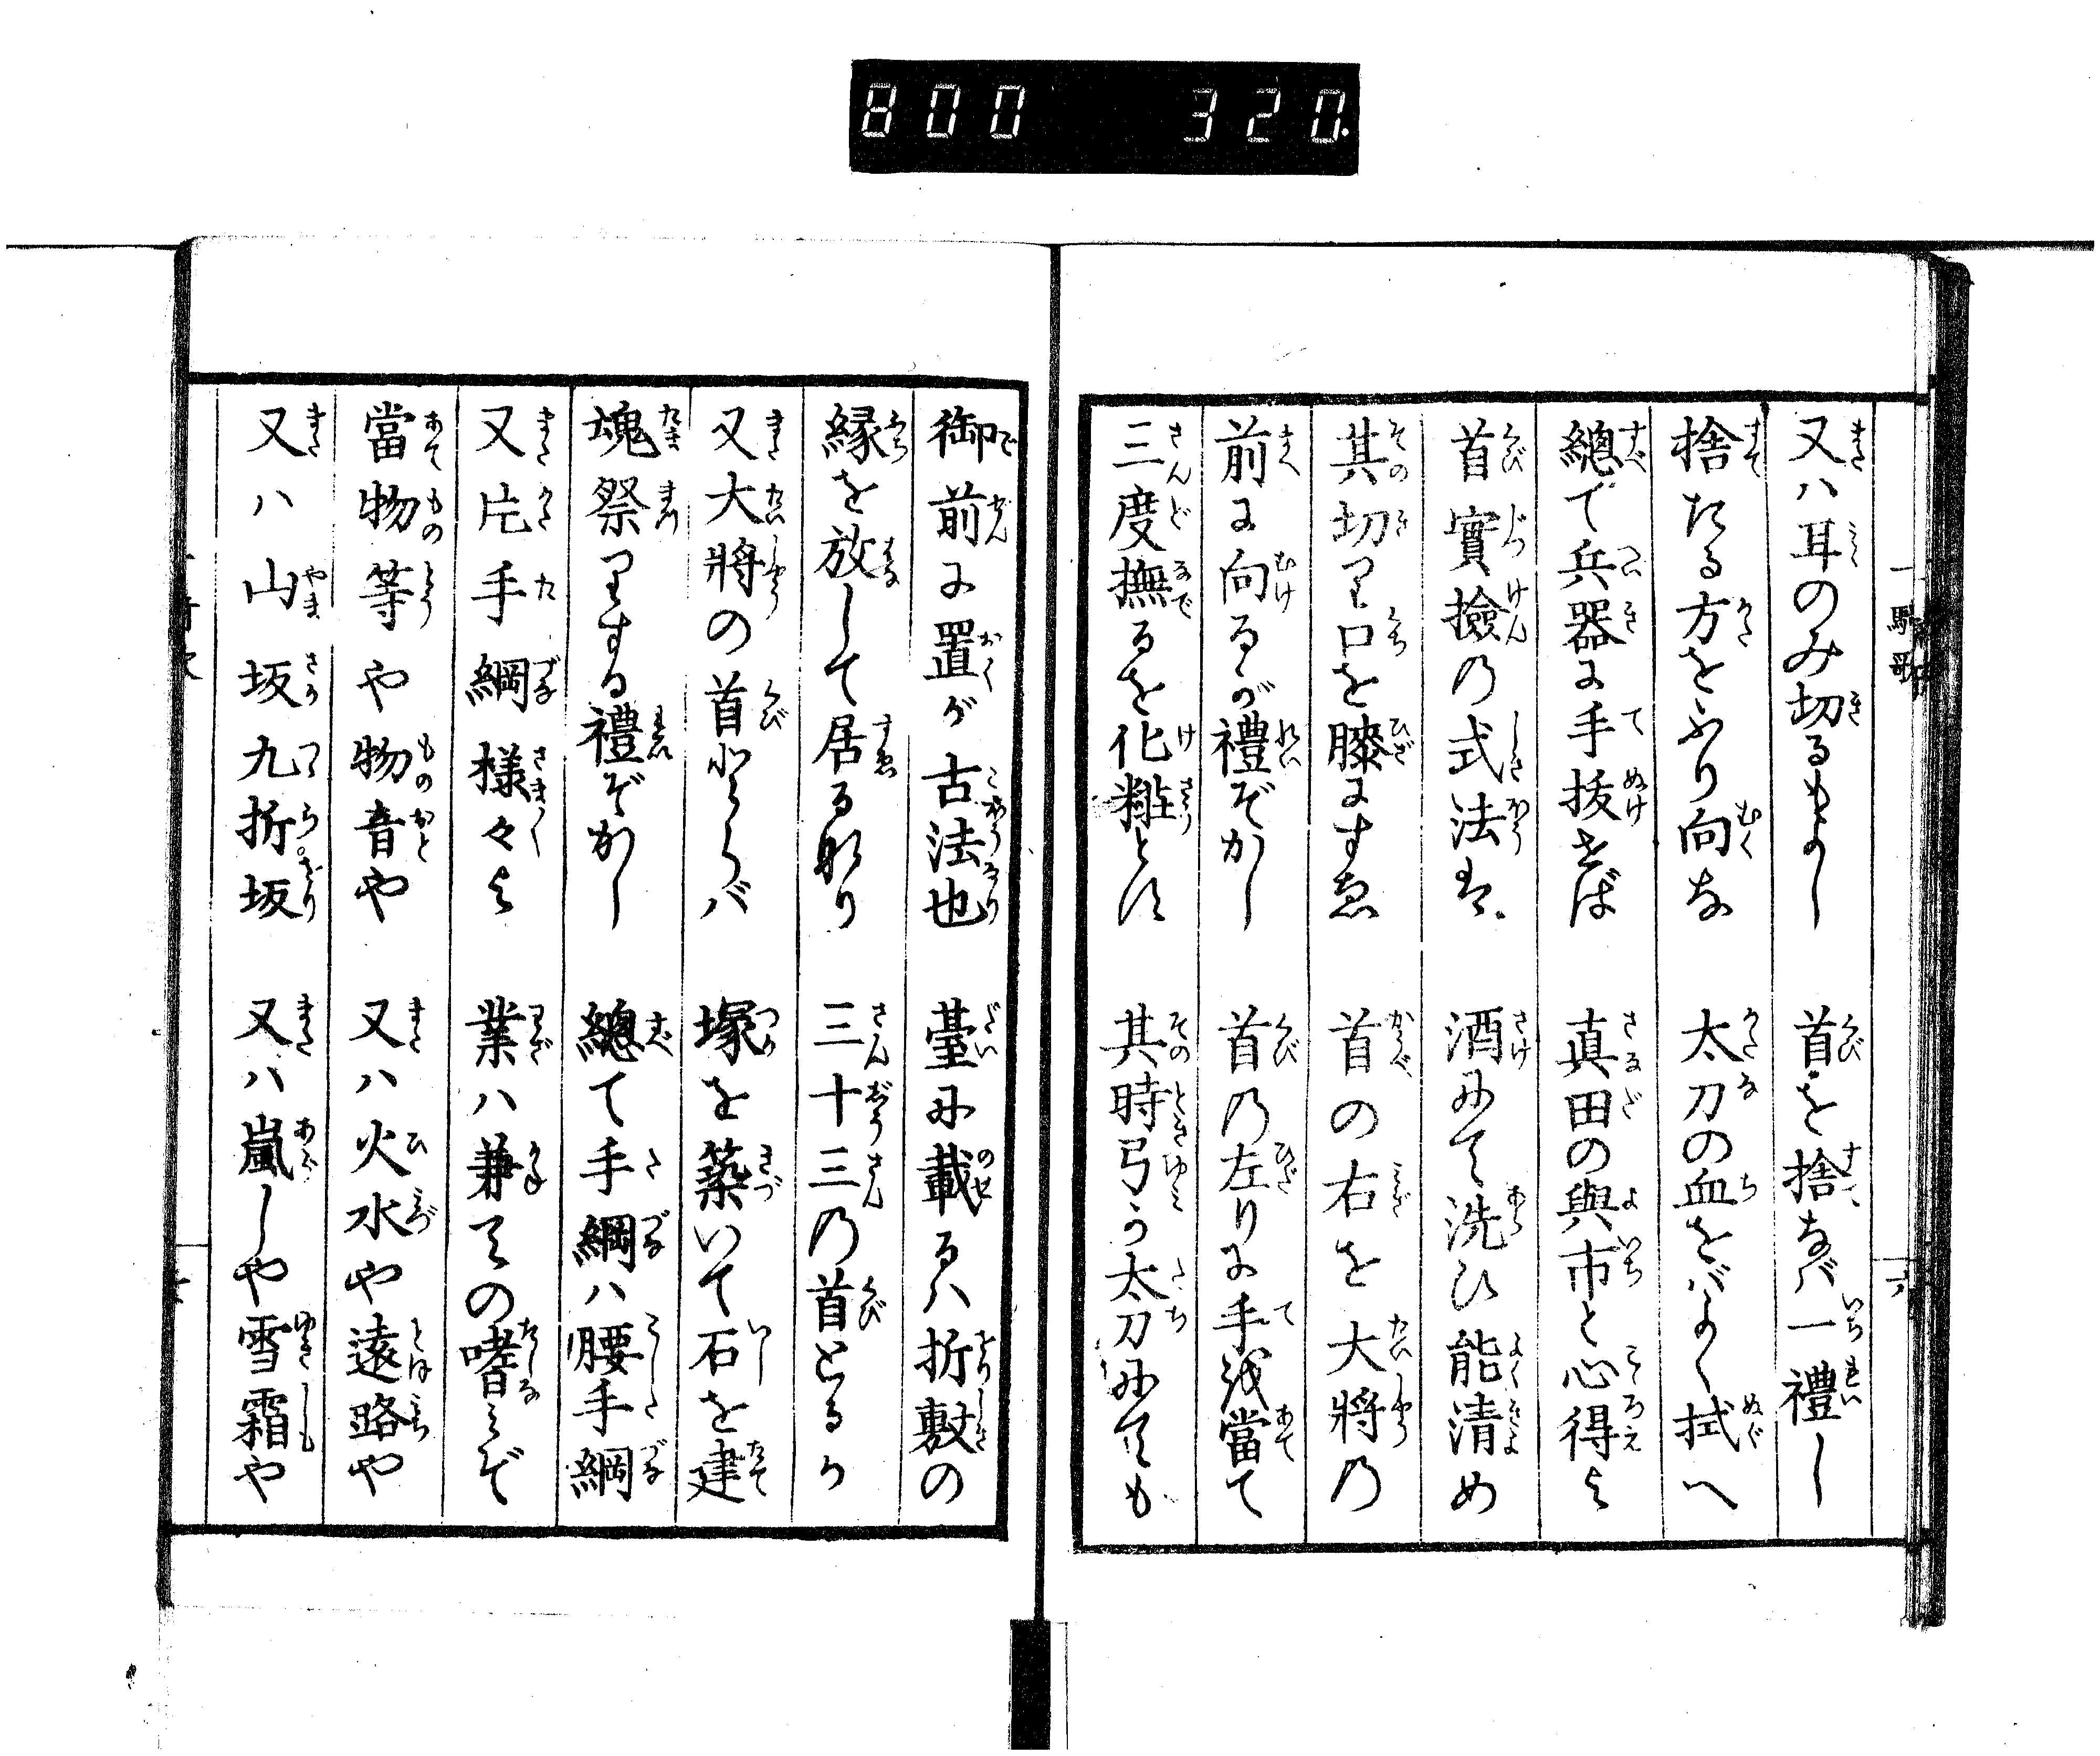 800 320.
又ハ耳のみ切るもよし 首を捨なバ一禮し
捨たる方をふり向な 太刀の血をバよく拭へ
總で兵器に手抜せば 真田の與市と心得よ
首實撿の式法は 酒にて洗ひ能清め
其切り口を膝にすゑ 首の右を大將の
前に向るが禮ぞかし 首の左りに手を當て
三度撫るを化粧とは 其時弓か太刀にても
御前に置が古法也 臺に載るハ折敷の
縁を放して居る也り 三十三の首とるか
又大將の首とらバ 塚を築いて石を建
魂祭りする禮ぞかし 總て手綱ハ腰手綱
又片手綱様々よ 業ハ兼ての嗜みぞ
當物等や物音や 又ハ火水や遠路や
又ハ山坂九折坂 又ハ嵐しや雪霜や